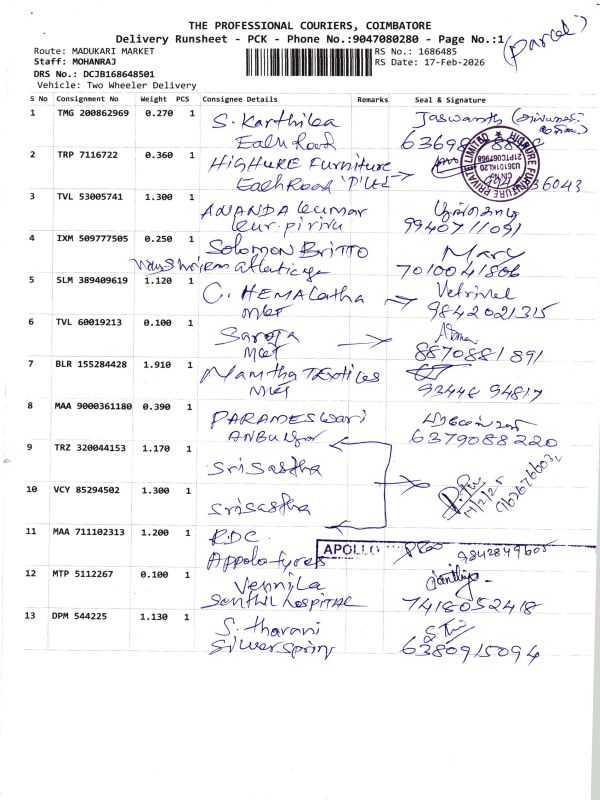 THE PROFESSIONAL COURIERS, COIMBATORE
Delivery Runsheet - PCK - Phone No.:9047080280 - Page No.:1
(Parcel)
Route: MADUKARI MARKET
RS No.: 1686485
Staff: MOHANRAJ
RS Date: 17-Feb-2026
DRS No.: DCJB168648501
Vehicle: Two Wheeler Delivery
S No Consignment No Weight PCS Consignee Details Remarks Seal & Signature
1 TMG 200862969 0.270 1 S. Karthika Jaswanth
Road
2 TRP 7116722 0.360 1 HIGHURE Furniture
Road
HIGHURE FURNITURE PRIVATE LIMITED
3 TVL 53005741 1.300 1 ANANDA Kumar
9940711091
4 IXM 509777505 0.250 1 Solomon BRITTO Mary
7010041806
5 SLM 389409619 1.120 1 C. HEMALatha Vetrivel
MKT 9842021315
6 TVL 60019213 0.100 1 SaroJA
MKT 8870881891
7 BLR 155284428 1.910 1 Mamtha TEXtiles
MKT 93446 94817
8 MAA 9000361180 0.390 1 PARAMESwari
6379088220
9 TRZ 320044153 1.170 1 Sri Sastha
10 VCY 85294502 1.300 1 Srisastha
11 MAA 711102313 1.200 1 R.DC.
Appolo tyres APOLLO 9842849605
12 MTP 5112267 0.100 1 Vennila
Senthil hospital 7418052418
13 DPM 544225 1.130 1 S. tharani
Silverspring 6380915094